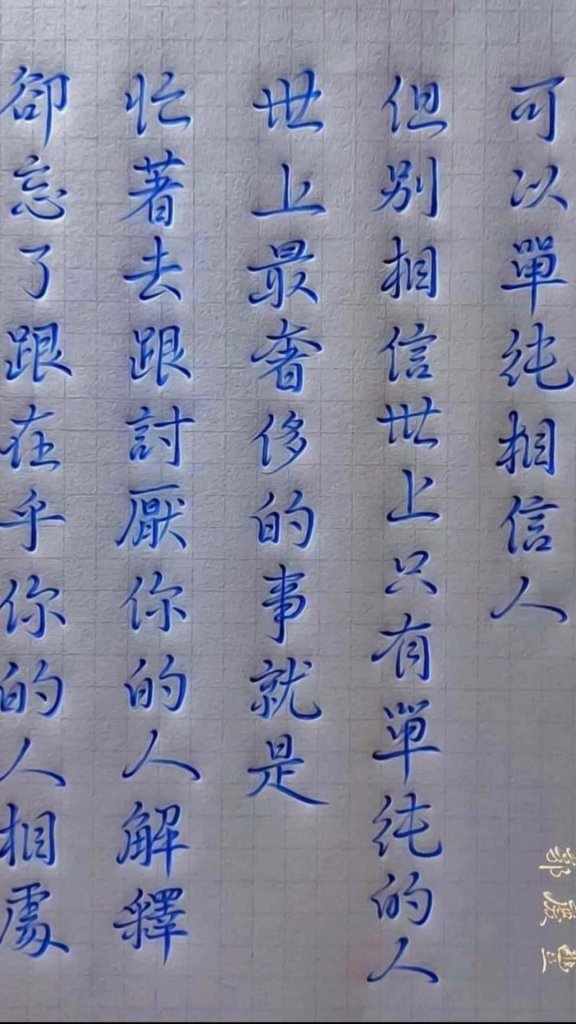 可以單純相信人
但別相信世上只有單純的人
世上最奢侈的事就是
忙著去跟討厭你的人解釋
卻忘了跟在乎你的人相處